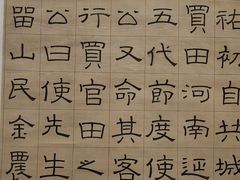 祐初自共城
買田河南延
五代節度使
公又命其客
行買官田之
公曰使先生
畱山民金農